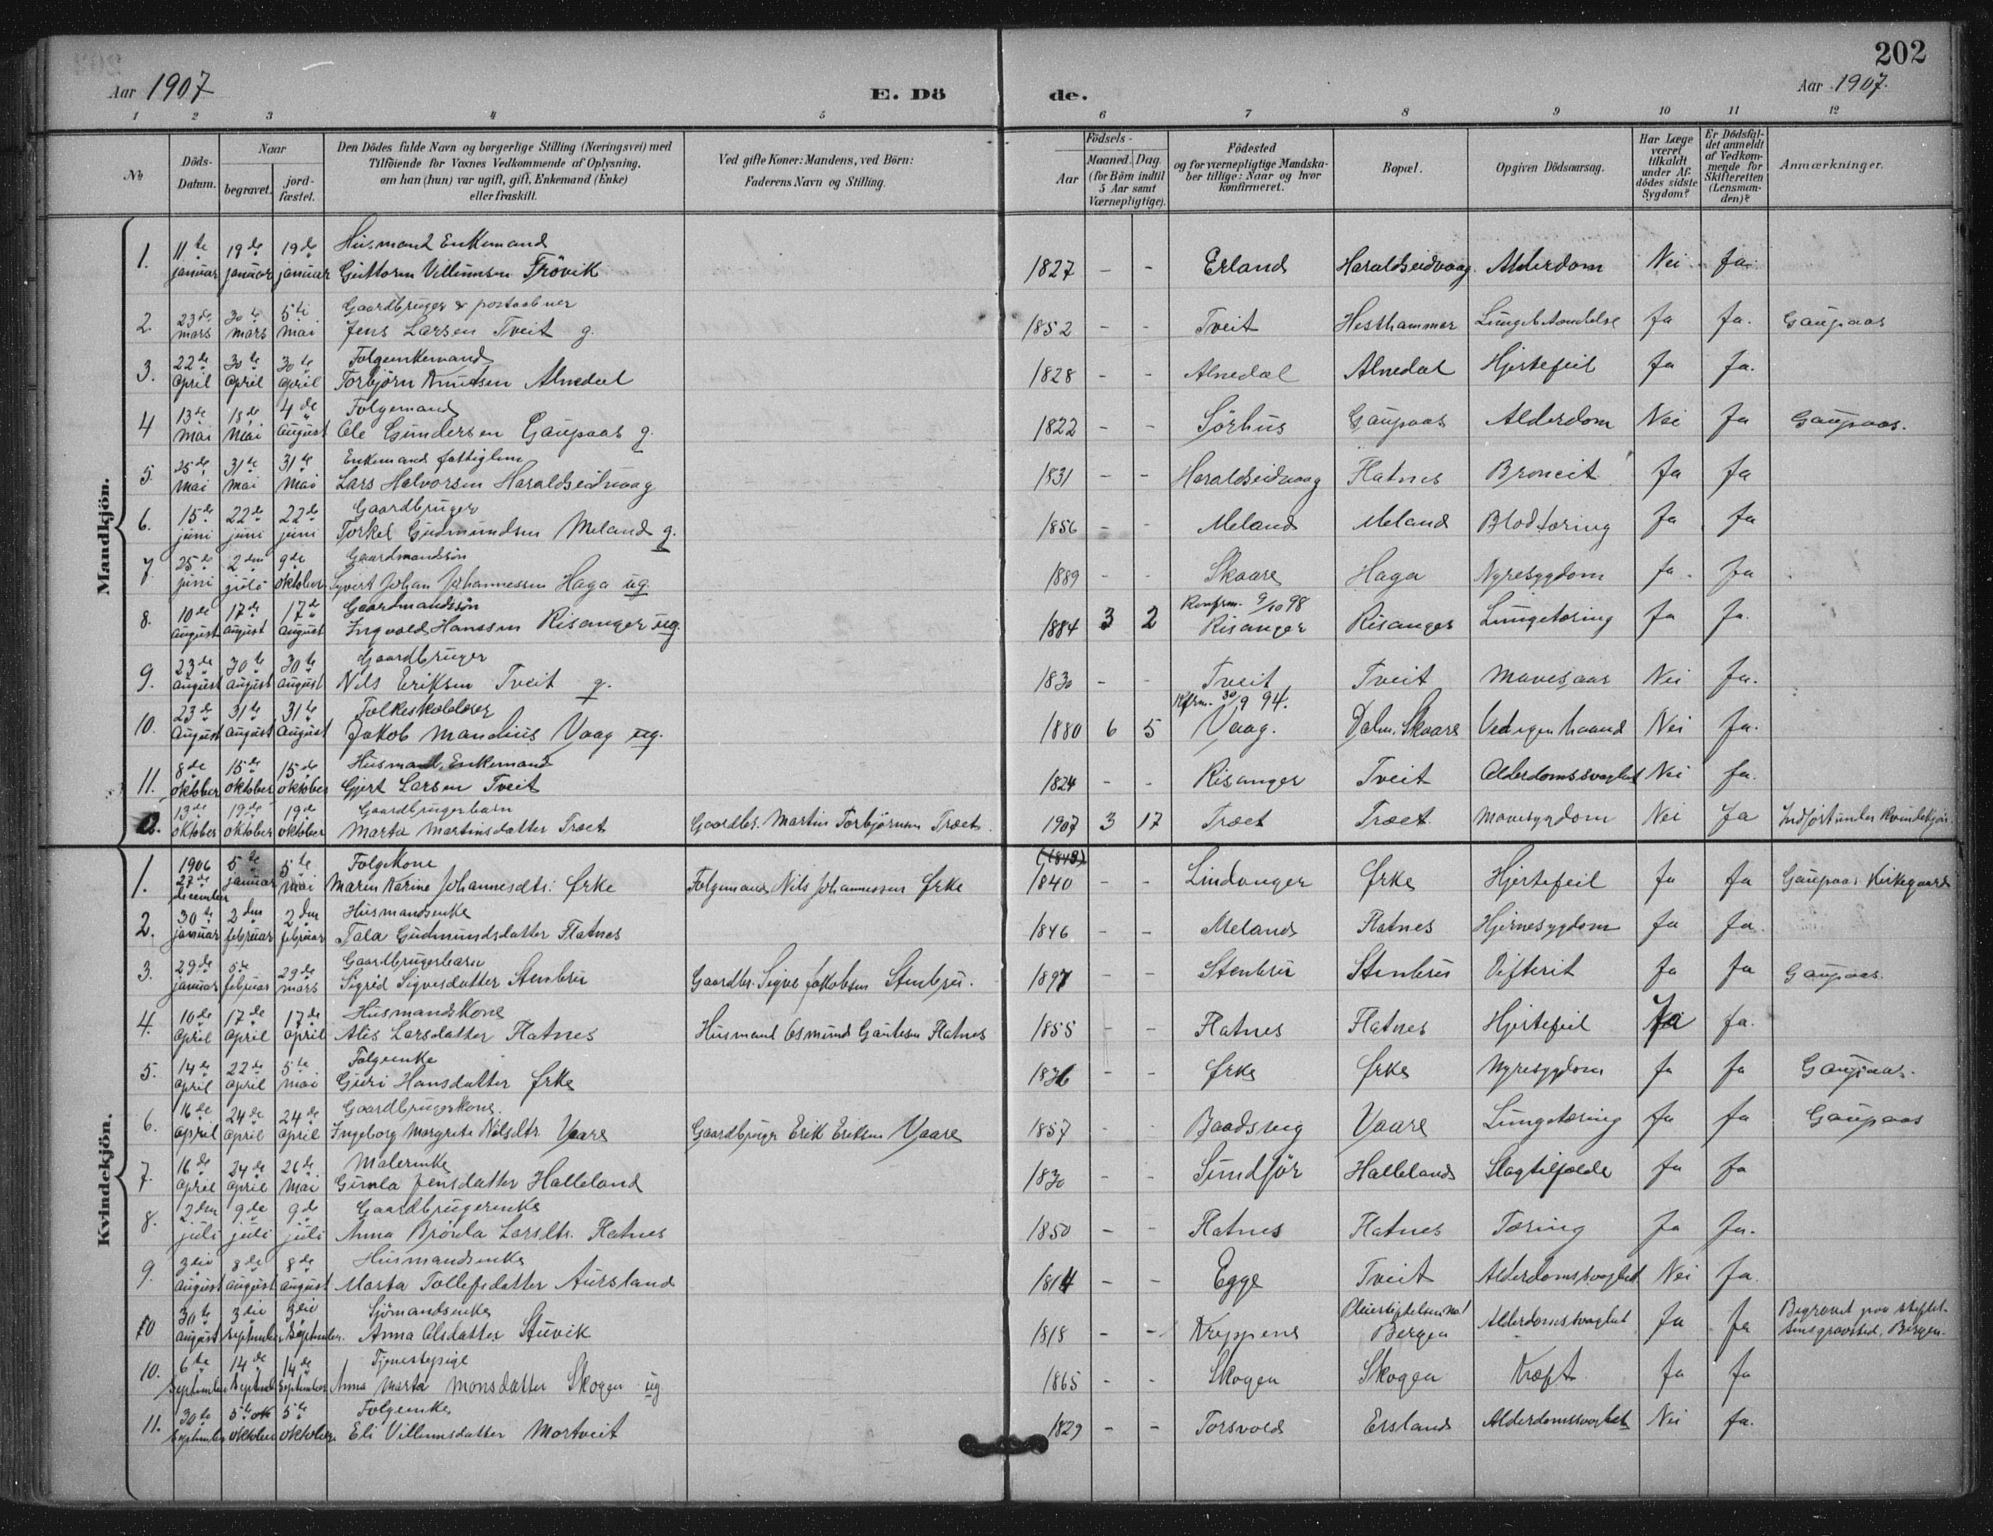 202
Aar 1907
E. Dö
de.
Aar 1907.
1 2 3 4 5 6 7 8 9 10 11 12
No
Döds-
Datum.
Naar
begravet.
jord-
fæstet.
Den Dödes fulde Navn og borgerlige Stilling (Næringsvei) med
Tilföiende for Voxnes Vedkommende af Oplysning,
om han (hun) var ugift, gift, Enkemand (Enke)
eller fraskilt.
Ved gifte Koner: Mandens, ved Börn:
Faderens Navn og Stilling.
Födsels-
Aar
Maaned. Dag.
(for Börn indtil
5 Aar samt
Værnepligtige).
Födested
og for værnepligtige Mandska-
ber tillige: Naar og hvor
konfirmeret.
Bopæl.
Opgiven Dödsaarsag.
Har Læge
været
tilkaldt
under Af-
dödes sidste
Sygdom?
Er Dödsfal-
det anmeldt
af Vedkom-
mende for
Skifteretten
(Lensman-
den)?
Anmærkninger.
Mandkjön.
1. 11te januar 19de januar 19de januar Husmand Enkemand
Guttorm Villumsen Trövik 1827 - - Erland Haraldseidvaag Alderdom Nei Ja.
2. 23de mars 30te mars 5te mai Gaardbruger & postaabner
Jens Larsen Tveit g. 1852 - - Tveit Hesthammer Lungebetændelse Ja Ja. Gaupaas
3. 22de april 30te april 30te april Folgeenkemand
Torbjörn Knutsen Alnedal 1828 - - Alnedal Alnedal Hjertefeil Ja Ja.
4 13de mai 18de mai 4de august Folgemand
Ole Gundersen Gaupaas g. 1822 - - Sörhus Gaupaas Alderdom Nei Ja Gaupaas.
5. 25de mai 31te mai 31te mai Enkemand fattiglem
Lars Halvorsen Haraldseidvaag 1831 - - Haraldseidvaag Flatnes Bronkit Ja Ja
6. 15de juni 22de juni 22de juni Gaardbruger
Torkel Gudmundsen Meland g. 1856 - - Meland Meland Blodtæring Ja Ja
7. 25de juni 2den juli 9de oktober Gaardmandssön
Syvert Johan Johannessen Haga ug. 1889 - - Skaare Haga Nyresygdom Ja. Ja
8. 10de august 17de august 17de august Gaardmandssön
Ingvald Hanssen Risanger ug. 1884 3 2 Konfrm. 9/10 98
Risanger Risanger Lungetæring Ja Ja.
9. 23de august 30te august 30te august Gaardbruger
Nils Eriksen Tveit g. 1830 - - Tveit Tveit Mavesaar Nei Ja.
10. 23de august 31te august 31te august Folkeskolelærer
Jakob Mandius Vaag ug. 1880 6 5 Kfrm. 30/9 94.
Vaag. Dalen, Skaare Ved egen haand Nei Ja.
11. 8de oktober 15de oktober 15de oktober Husmand, Enkemand
Gjert Larsen Tveit 1824 - - Risanger Tveit Alderdomssvaghet Nei Ja.
12. 13de oktober 19de oktober 19de oktober Gaardbrugerbarn
Marta Martinsdatter Træet Gaardbr. Martin Torbjörnsen Træet. 1907 3 17 Træet Træet Mavesygdom Nei Ja Indfört under Kvindekjön
Kvindekjön.
1. 1906 27de december 5te januar 5te mai Folgekone
Marin Karine Johannesdtr. Örke Folgemand Nils Johannessen Örke (1843) 1840 - - Lindanger Örke Hjertefeil Ja Ja Gaupaas Kirkegaard
2. 30te januar 2den februar 2den februar Husmandsenke
Tala Gudmundsdatter Flatnes 1846 - - Meland Flatnes Hjernesygdom Ja Ja.
3. 29de januar 5te februar 29de mars Gaardbrugerbarn
Sigrid Sigvesdatter Stenbru Gaardbr. Sigve Jakobsen Stenbru. 1897 - - Stenbru Stenbru Difterit Ja Ja Gaupaas.
4. 10de april 17de april 17de april Husmandskone
Ales Larsdatter Flatnes Husmand Osmund Gautesen Flatnes 1855 - - Flatnes Flatnes Hjertefeil Ja Ja.
5. 14de april 22de april 5te mai Folgeenke
Guri Hansdatter Örke 1836 - - Örke Örke Nyresygdom Ja Ja Gaupaas.
6. 16de april 24de april 24de april Gaardbrugerkone.
Ingeborg Margrete Nilsdtr. Vaare Gaardbruger Erik Eriksen Vaare 1857 - - Baadsvig Vaare Lungetæring Ja Ja Gaupaas
7. 16de april 24de april 26de mai Malerenke
Gunla Jensdatter Halleland 1830 - - Sundför Halleland Slagtilfælde Ja Ja
8. 2den juli 9de juli 9de juli Gaardbrugerenke
Anna Brönla Larsdtr. Flatnes 1850 - - Flatnes Flatnes Tæring Ja Ja.
9. 3die august 8de august 8de august Husmandsenke
Marta Tollefsdatter Aursland 1814 - - Egge Tveit Alderdomssvaghet Nei Ja.
10 30te august 3die september 3die september. Sjömandsenke
Anna Olsdatter Stuvik 1818 - - Kreppene Pleiestiftelsen No 1
Bergen Alderdomssvaghet Ja Ja Begravet paa stiftel-
sens gravsted, Bergen.
10. 6te september 14de september 14de september Tjenestepige
Anna Marta Monsdatter Skogen ug 1865 - - Skogen Skogen Kræft Ja Ja
11. 30te september 5te ok oktober 5te oktober Folgeenke
Eli Villumsdatter Mortveit 1829 - - Torsvold Ersland Alderdomssvaghet Nei Ja.